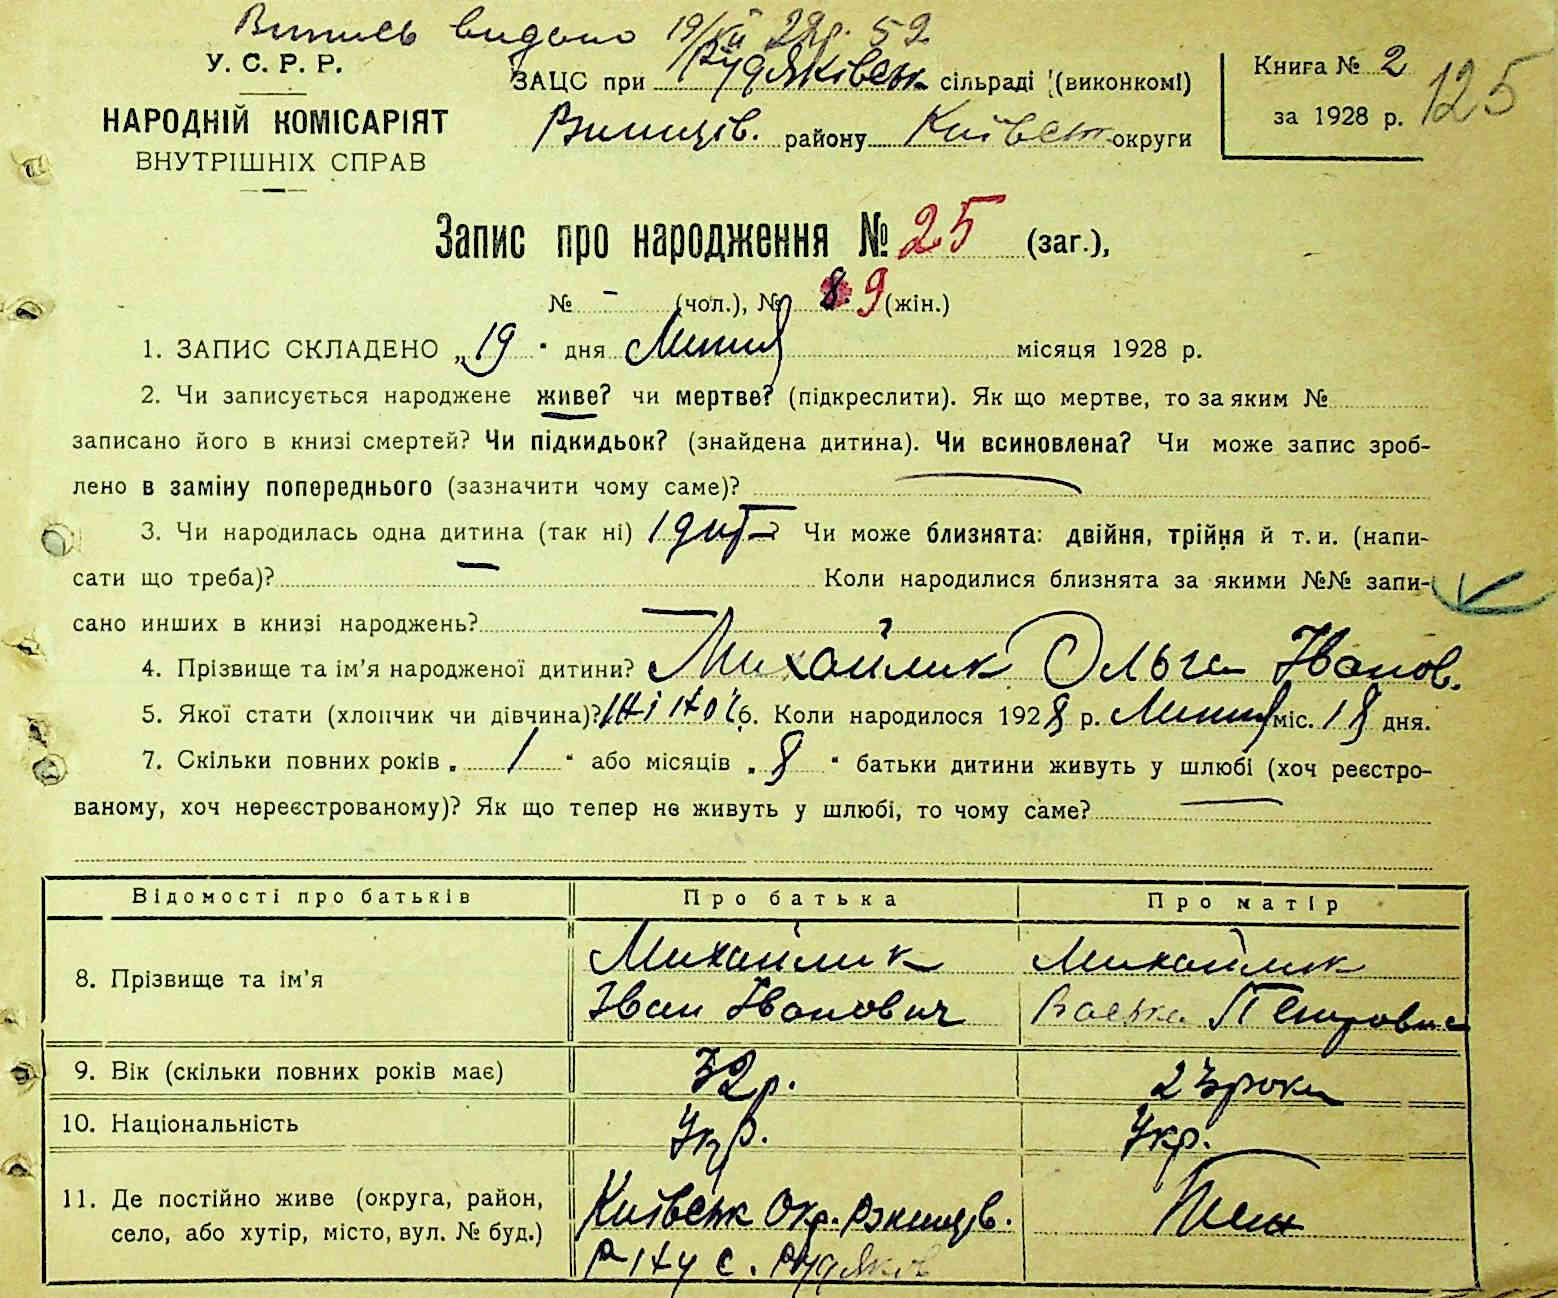 Випись видано 19/VII 29р. 52
У. С. Р. Р.
НАРОДНІЙ КОМІСАРІЯТ
ВНУТРІШНІХ СПРАВ
ЗАЦС при Рудяківськ сільраді (виконкомі)
району Київськ округи
Книга № 2
за 1928 р.
125
Запис про народження № 25 (заг.),
№ - (чол.), № 8. 9 (жін.)
1. ЗАПИС СКЛАДЕНО „19" дня Липня місяця 1928 р.
2. Чи записується народжене живе? чи мертве? (підкреслити). Як що мертве, то за яким №
записано його в книзі смертей? Чи підкидьок? (знайдена дитина). Чи всиновлена? Чи може запис зроб-
лено в заміну попереднього (зазначити чому саме)? —
3. Чи народилась одна дитина (так ні) 1 дит—? Чи може близнята: двійня, трійня й т. и. (напи-
сати що треба)? — Коли народилися близнята за якими №№ запи-
сано инших в книзі народжень? —
4. Прізвище та ім'я народженої дитини? Михайлик Ольга Іванов.
5. Якої стати (хлопчик чи дівчина)? 6. Коли народилося 1928 р. Липня міс. 18 дня.
7. Скільки повних років „1" або місяців „8" батьки дитини живуть у шлюбі (хоч реєстро-
ваному, хоч нереєстрованому)? Як що тепер не живуть у шлюбі, то чому саме? —
Відомості про батьків Про батька Про матір
8. Прізвище та ім'я Михайлик Михайлик
Іван Іванович Васька Петровна
9. Вік (скільки повних років має) 32 р. 23 роки
10. Національність Укр. Укр.
11. Де постійно живе (округа, район, село, або хутір, місто, вул. № буд.)
Київськ Окр.
р-ну с. Рудяков